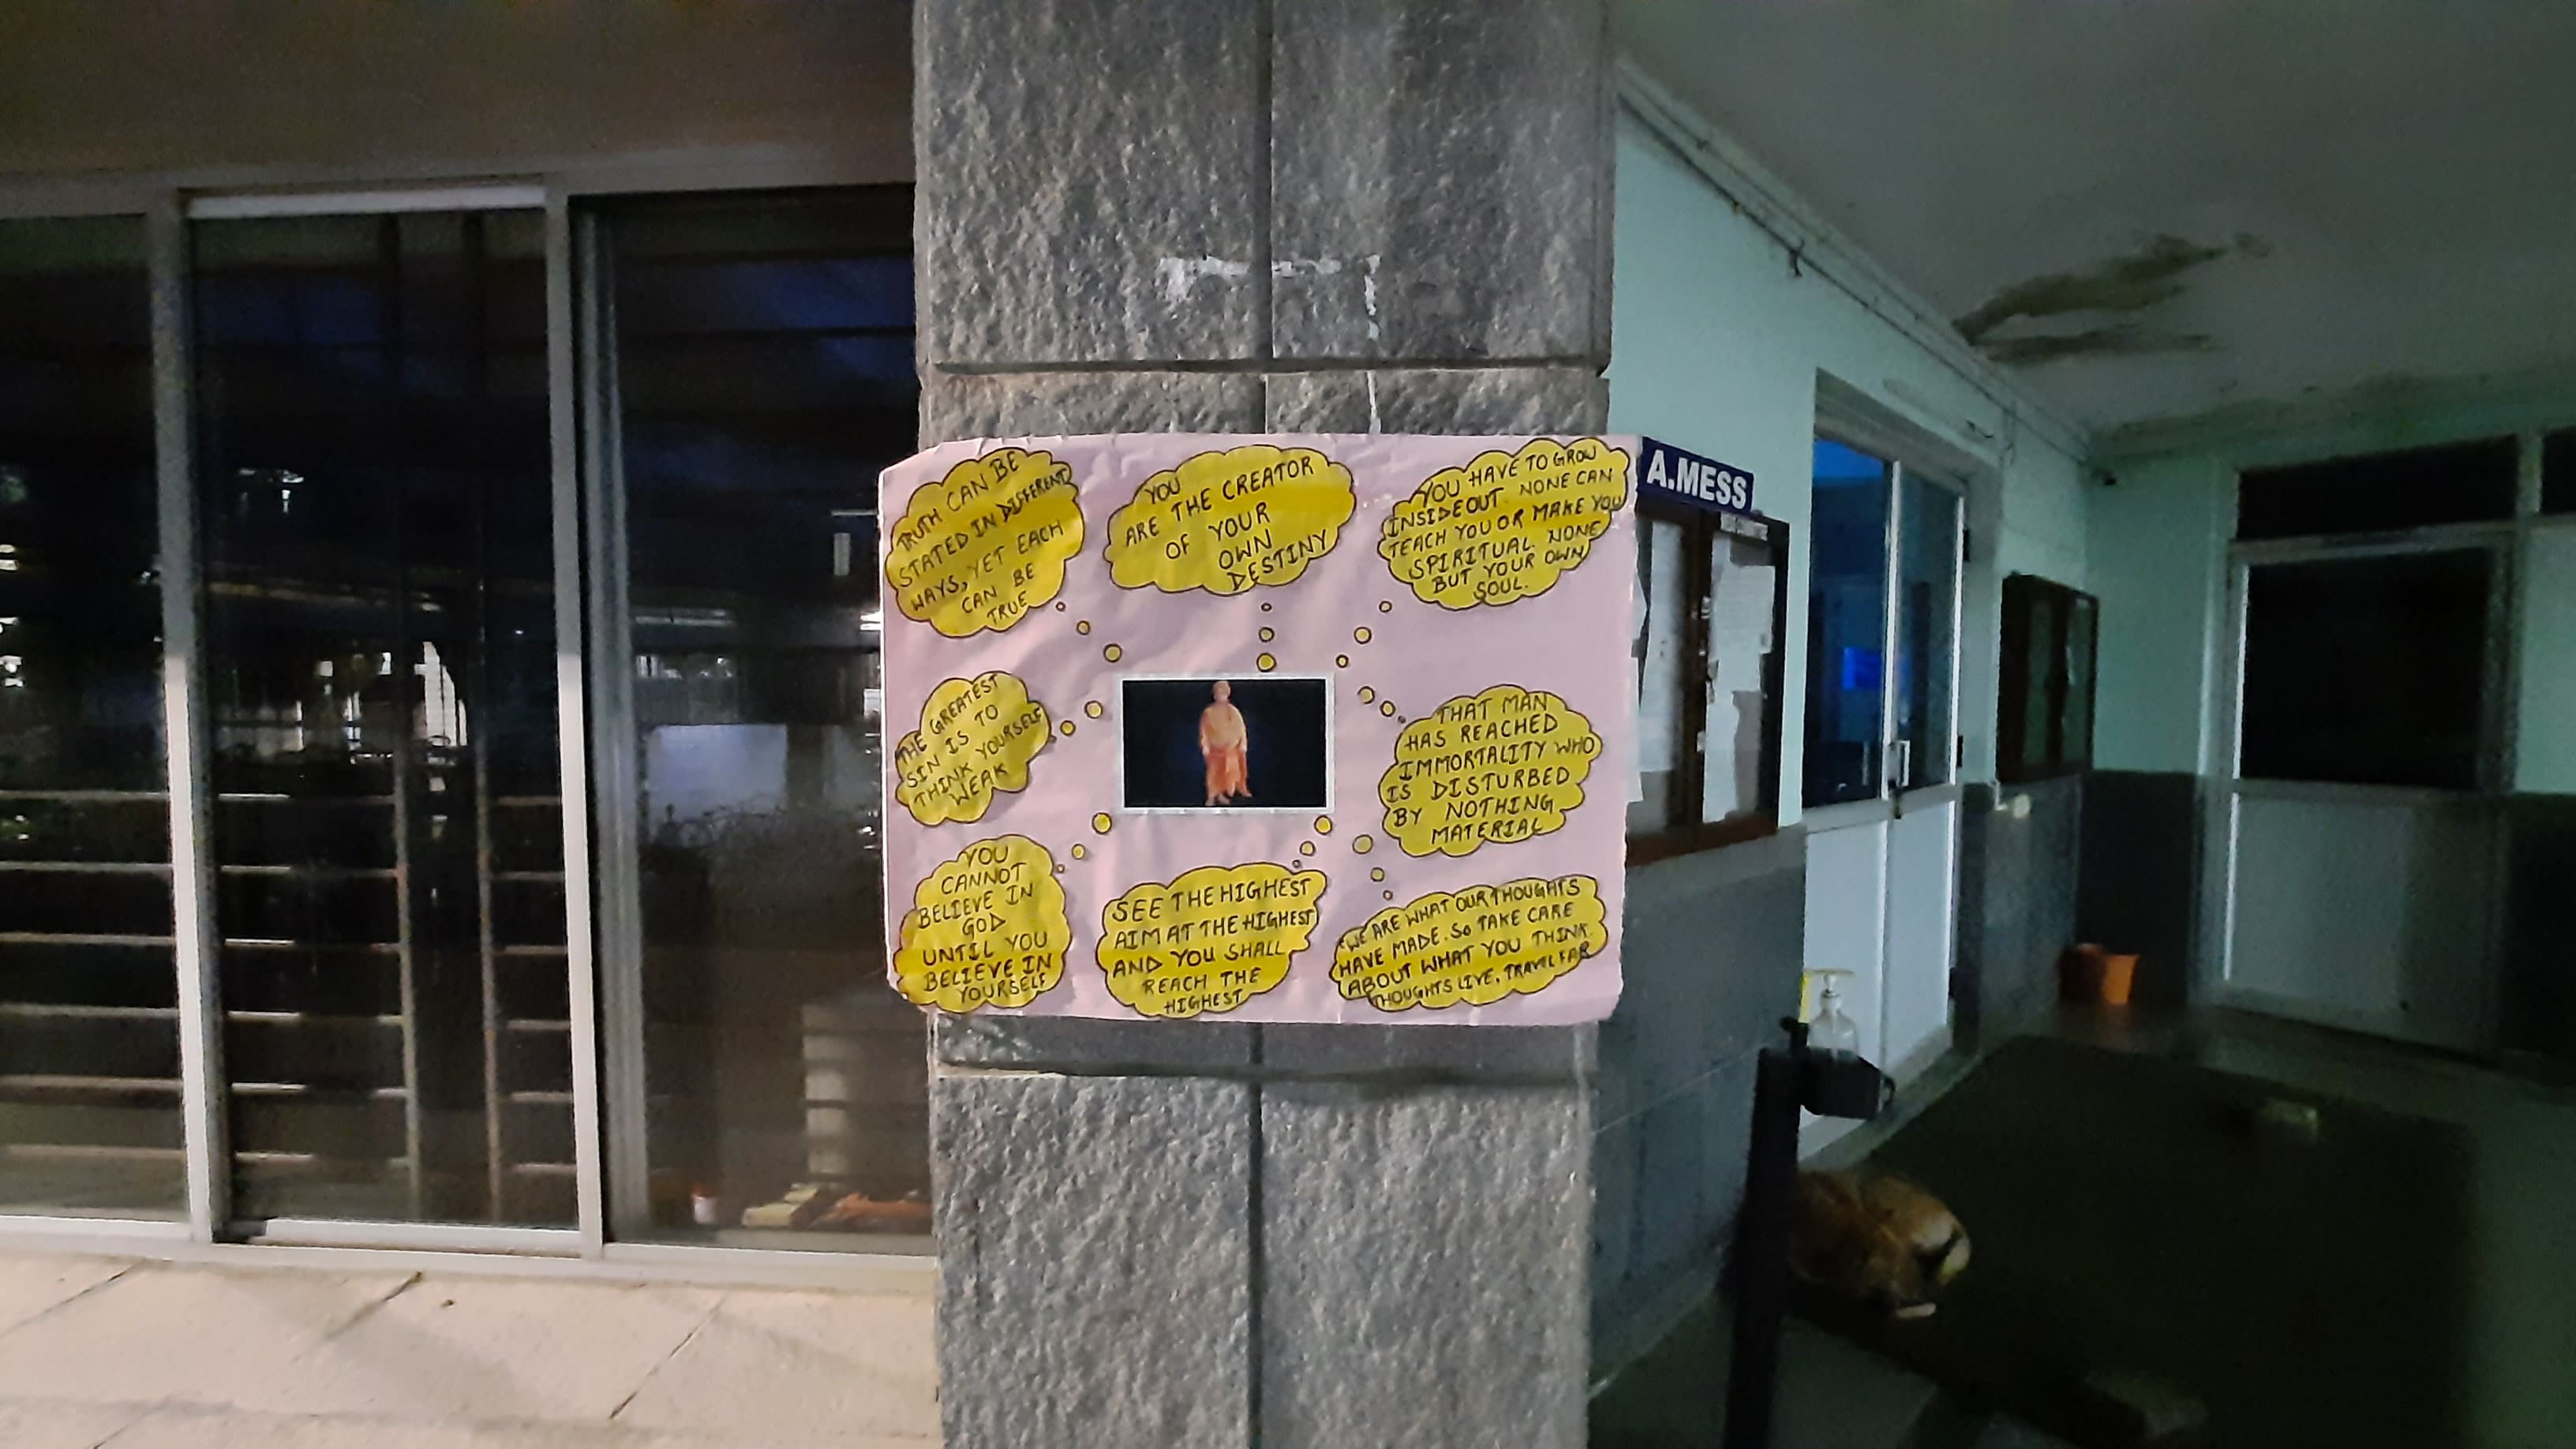 TRUTH CAN BE
STATED IN DIFFERENT
WAYS, YET EACH
CAN BE
TRUE
YOU
ARE THE CREATOR
OF YOUR
OWN
DESTINY
YOU HAVE TO GROW
INSIDEOUT. NONE CAN
TEACH YOU OR MAKE YOU
SPIRITUAL. NONE
BUT YOUR OWN
SOUL.
A.MESS
THE GREATEST
SIN IS TO
THINK YOURSELF
WEAK
THAT MAN
HAS REACHED
IMMORTALITY WHO
IS DISTURBED
BY NOTHING
MATERIAL
YOU
CANNOT
BELIEVE IN
GOD
UNTIL YOU
BELIEVE IN
YOURSELF
SEE THE HIGHEST
AIM AT THE HIGHEST
AND YOU SHALL
REACH THE
HIGHEST
"WE ARE WHAT OUR THOUGHTS
HAVE MADE. SO TAKE CARE
ABOUT WHAT YOU THINK.
THOUGHTS LIVE, TRAVEL FAR